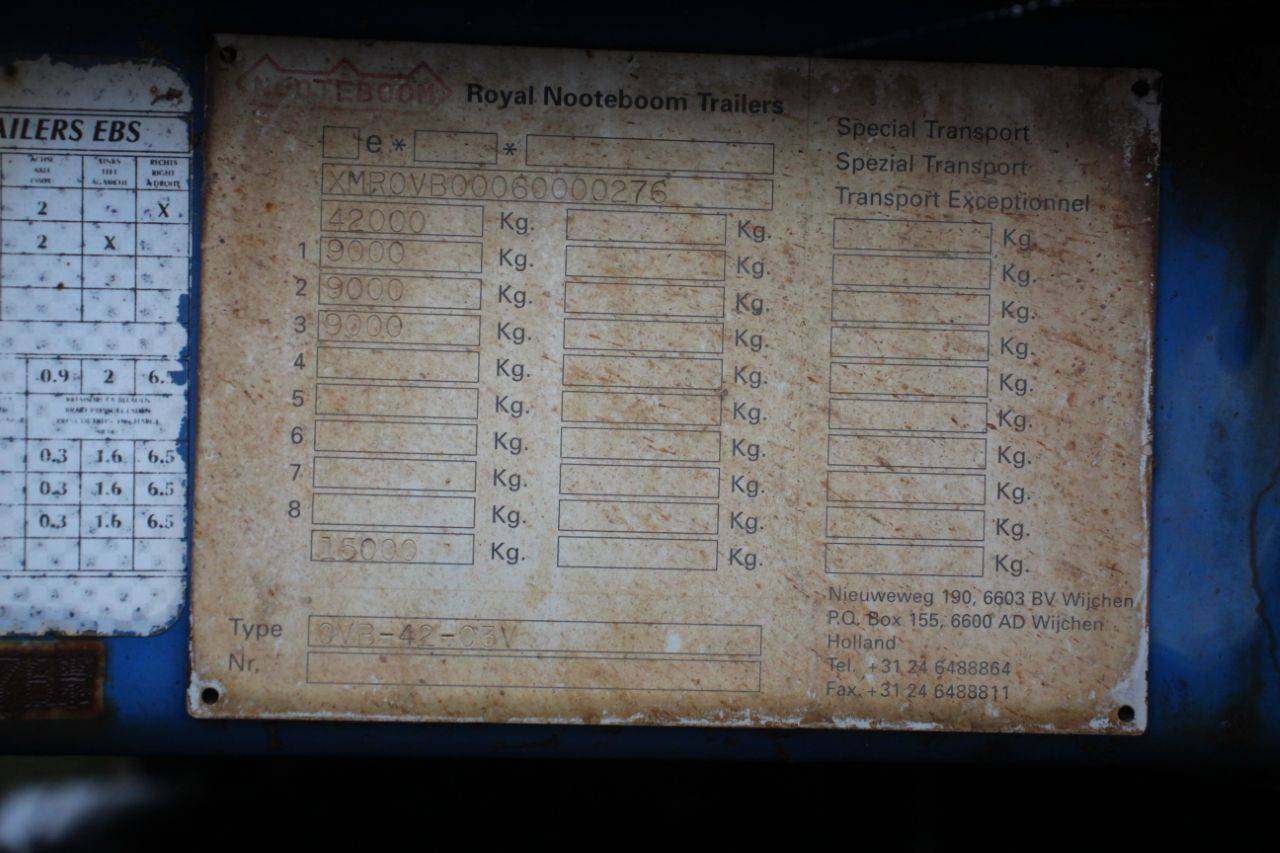 AILERS EBS
ACHSE LINKS RECHTS
AXLE LEFT RIGHT
ESSIEU A GAUCHE A DROITE
2 X
2 X
0.9 2
0.3 1.6 6.5
0.3 1.6 6.5
0.3 1.6 6.5
NOOTEBOOM Royal Nooteboom Trailers
e * *
XMROVB00060000276
42000 Kg. Kg. Kg.
1 9000 Kg. Kg. Kg.
2 9000 Kg. Kg. Kg.
3 9000 Kg. Kg. Kg.
4 Kg. Kg. Kg.
5 Kg. Kg. Kg.
6 Kg. Kg. Kg.
7 Kg. Kg. Kg.
8 Kg. Kg. Kg.
15000 Kg. Kg. Kg.
Type OVB-42-03V
Nr.
Special Transport
Spezial Transport
Transport Exceptionnel
Nieuweweg 190, 6603 BV Wijchen
P.O. Box 155, 6600 AD Wijchen
Holland
Tel. +31 24 6488864
Fax. +31 24 6488811